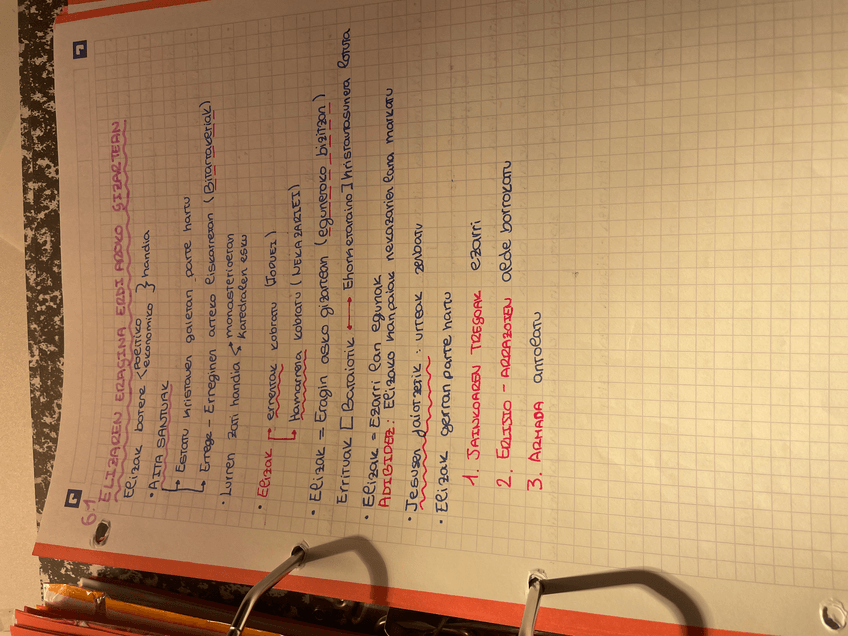 6.1
ELIZAREN ERAGINA ERDI AROKO GIZARTEAN
Elizak botere < politiko ekonomiko } handia
• AITA SANTUAK
↳ Estatu kristauen gaietan parte hartu
↳ Errege-Erreginen arteko liskarretan (Bitartekariak)
• Lurren zati handia < monasterioetan
katedralen esku
• Elizak → errentak kobratu (JOPUEI)
↳ hamarrena kobratu (NEKAZARIEI)
• Elizak = Eragin asko gizartean (eguneroko bizitzan)
Errituak [Bataiotik ↔ Ehorketaraino] kristautasunera lotuta
• Elizak = Ezarri lan egunak
ADIBIDEZ: Elizako kanpaiak nekazarien lana markatu
• Jesusen jaiotzetik: urteak zenbatu
• Elizak gerran parte hartu
1. JAINKOAREN TREGOAK ezarri
2. ERLISIO-ARRAZOIEN alde borrokatu
3. ARMADA antolatu